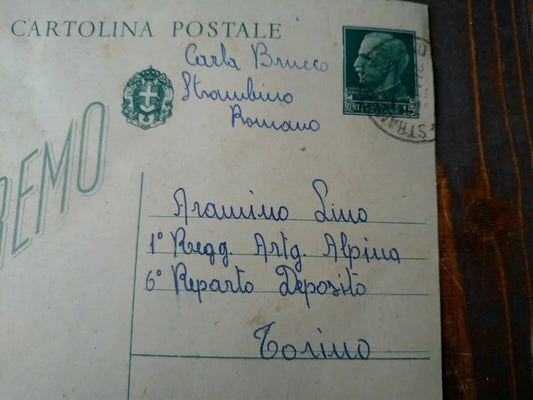 CARTOLINA POSTALE
Carla Brucco
Strambino
Romano
15
STRAM
REMO
Aramino Lino
1° Regg. Artg. Alpina
6° Reparto Deposito
Torino